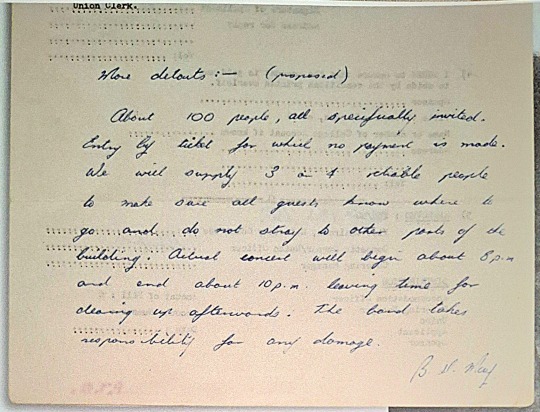 Union Clerk.
More details :— (proposed)
About 100 people, all specifically invited.
Entry by ticket for which no payment is made.
We will supply 3 or 4 reliable people
to make sure all guests know where to
go and do not stray to other parts of the
building. Actual concert will begin about 8 p.m
and end about 10 p.m. leaving time for
clearing up afterwards. The band takes
responsibility for any damage.
B